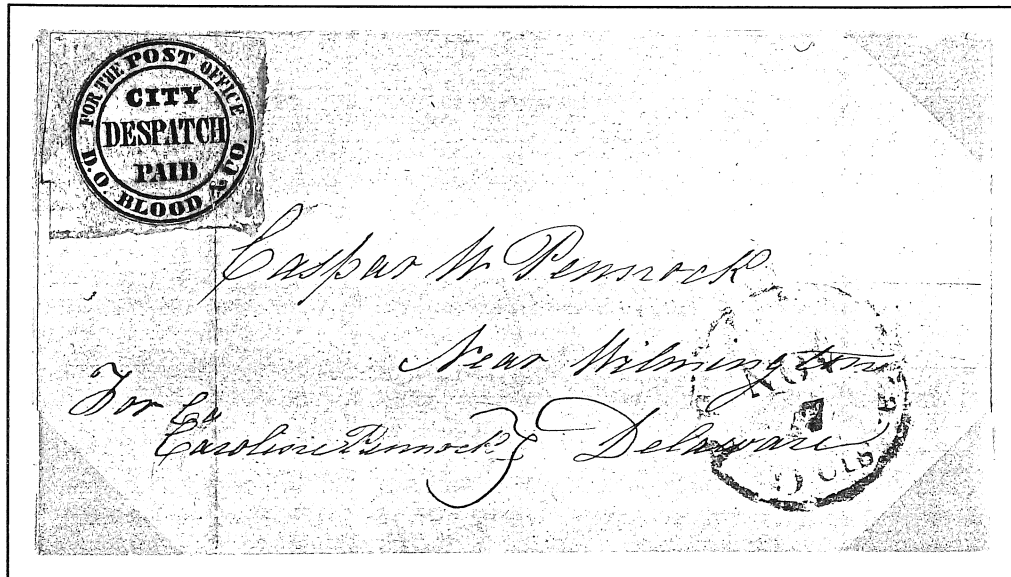 FOR THE POST OFFICE
CITY
DESPATCH
PAID
D.O. BLOOD & CO.
Caspar W Pennock
Near Wilmington
For Ca
Caroline Pennock } Delaware
NOV